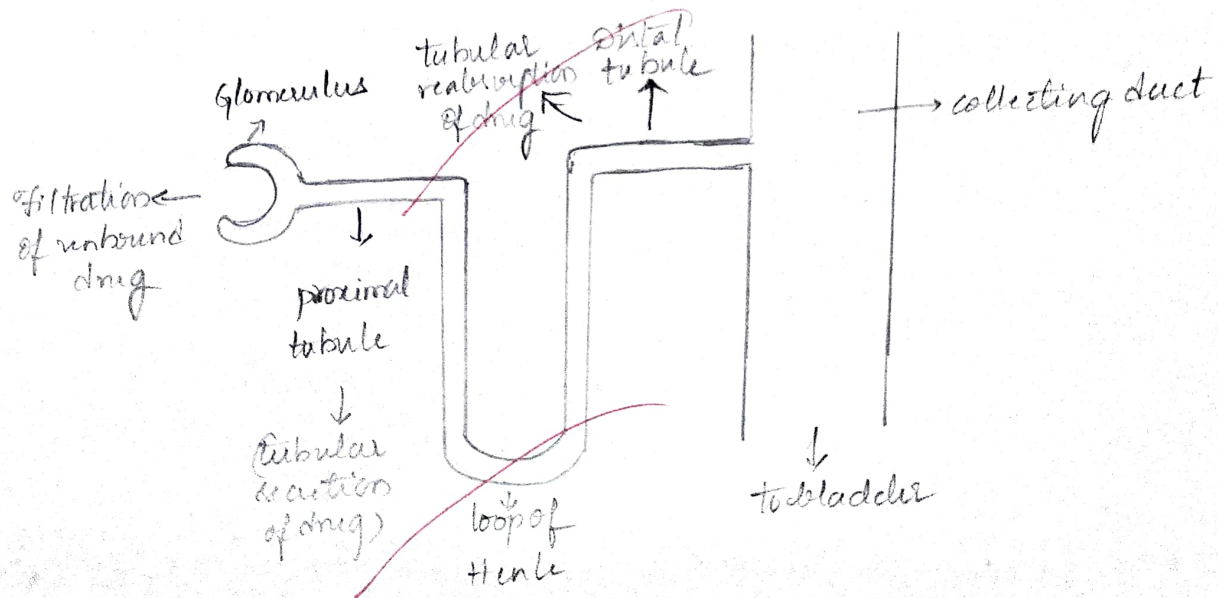 Glomerulus
tubular
reabsorption
of drug
Distal
tubule
collecting duct
Filtration
of unbound
drug
proximal
tubule
(tubular
secretion
of drug)
loop of
Henle
to bladder